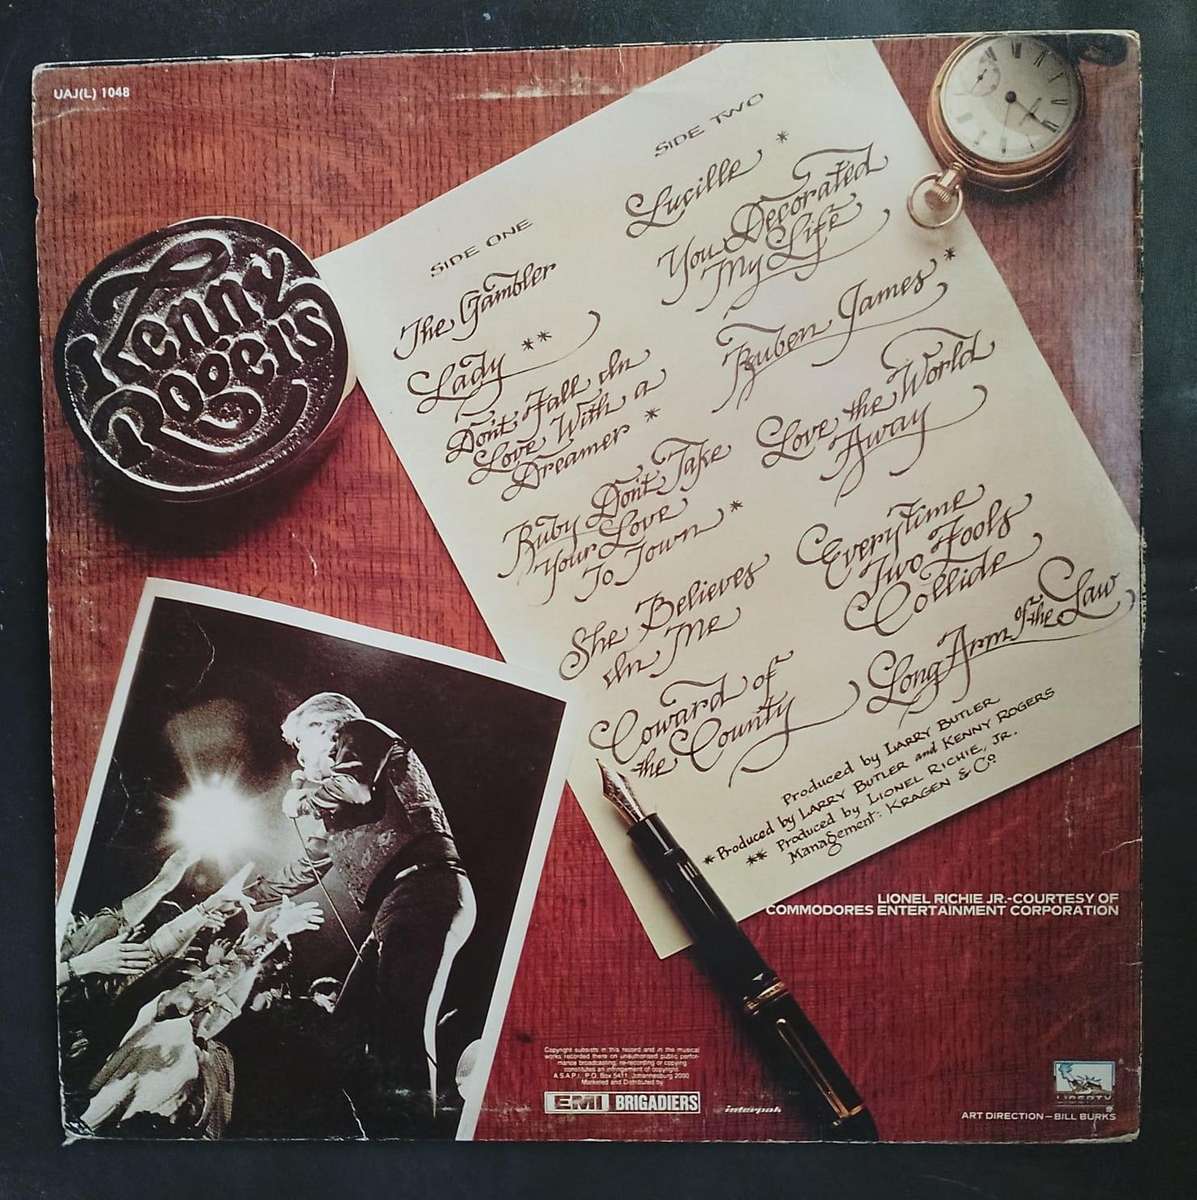 UAJ(L) 1048
Kenny
Rogers
SIDE ONE
The Gambler
Lady **
Don't Fall In
Love With a
Dreamer *
Ruby Don't Take
Your Love
To Town *
She Believes
In Me
Coward of
the County
SIDE TWO
Lucille *
You Decorated
My Life
Ruben James *
Love the World
Away
Everytime
Two Fools
Collide
Long Arm of the Law
Produced by LARRY BUTLER
*Produced by LARRY BUTLER and KENNY ROGERS
** Produced by LIONEL RICHIE, JR.
Management: KRAGEN & CO
LIONEL RICHIE JR.-COURTESY OF
COMMODORES ENTERTAINMENT CORPORATION
Copyright subsists in this record and in the musical
works recorded there on unauthorised public perfor-
mance broadcasting, re-recording or copying
constitutes an infringement of copyright
A.S.A.P.I., P.O. Box 5411, Johannesburg 2000
Marketed and Distributed by
EMI BRIGADIERS
interpak
LIBERTY
ART DIRECTION—BILL BURKS